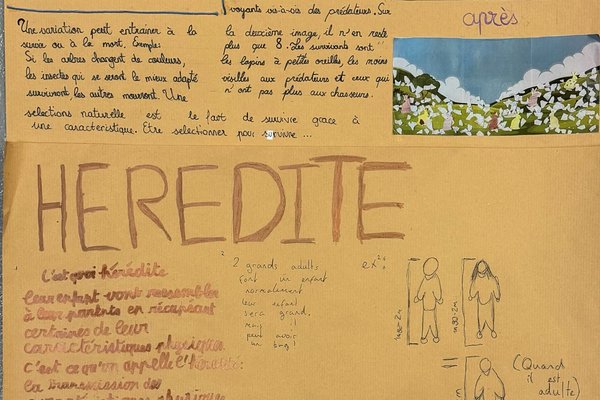 Une variation peut entrainer à la
survie ou à la mort. Exemple:
Si les arbres changent de couleurs,
les insectes qui se seront le mieux adapté
survivront les autres mourront. Une
selections naturelle est le fait de survivre grace à
une caracteristique. Etre selectionner pour survivre ...
voyants vis-à-vis des prédateurs. Sur
la deuxième image, il n'en reste
plus que 8. Les survivants sont
les lapins à petites oreilles, les moins
visibles aux prédateurs et ceux qui
n'ont pas plus aux chasseurs.
après
HEREDITE
C'est quoi hérédite
leur enfant vont ressembler
à leur parents en récupérant
certaines de leur
caractéristiques physiques
C'est ce qu'on appelle l'hérédité:
la transmission des
caractéristiques physiques
2 grands adults
font un enfant
normalement
leur enfant
sera grand.
mais il
peut avoir
un bug!
ex
=
(Quand
il est
adulte)